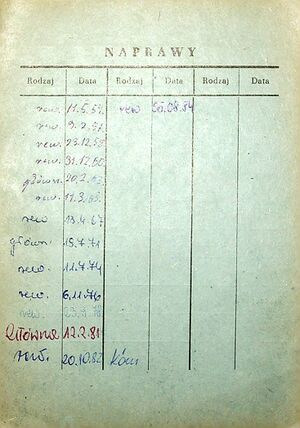 NAPRAWY
Rodzaj Data Rodzaj Data Rodzaj Data
rew. 11.5.57 rew 05.08.84
rew. 9.2.57
rew. 23.12.58
rew. 31.12.60
główn. 20.2.63
rew. 11.3.65
rew 13.4.67
główn. 15.7.71
rew. 11.7.74
rew. 6.11.76
rew. 78
Główna 12.2.81
rew. 20.10.82